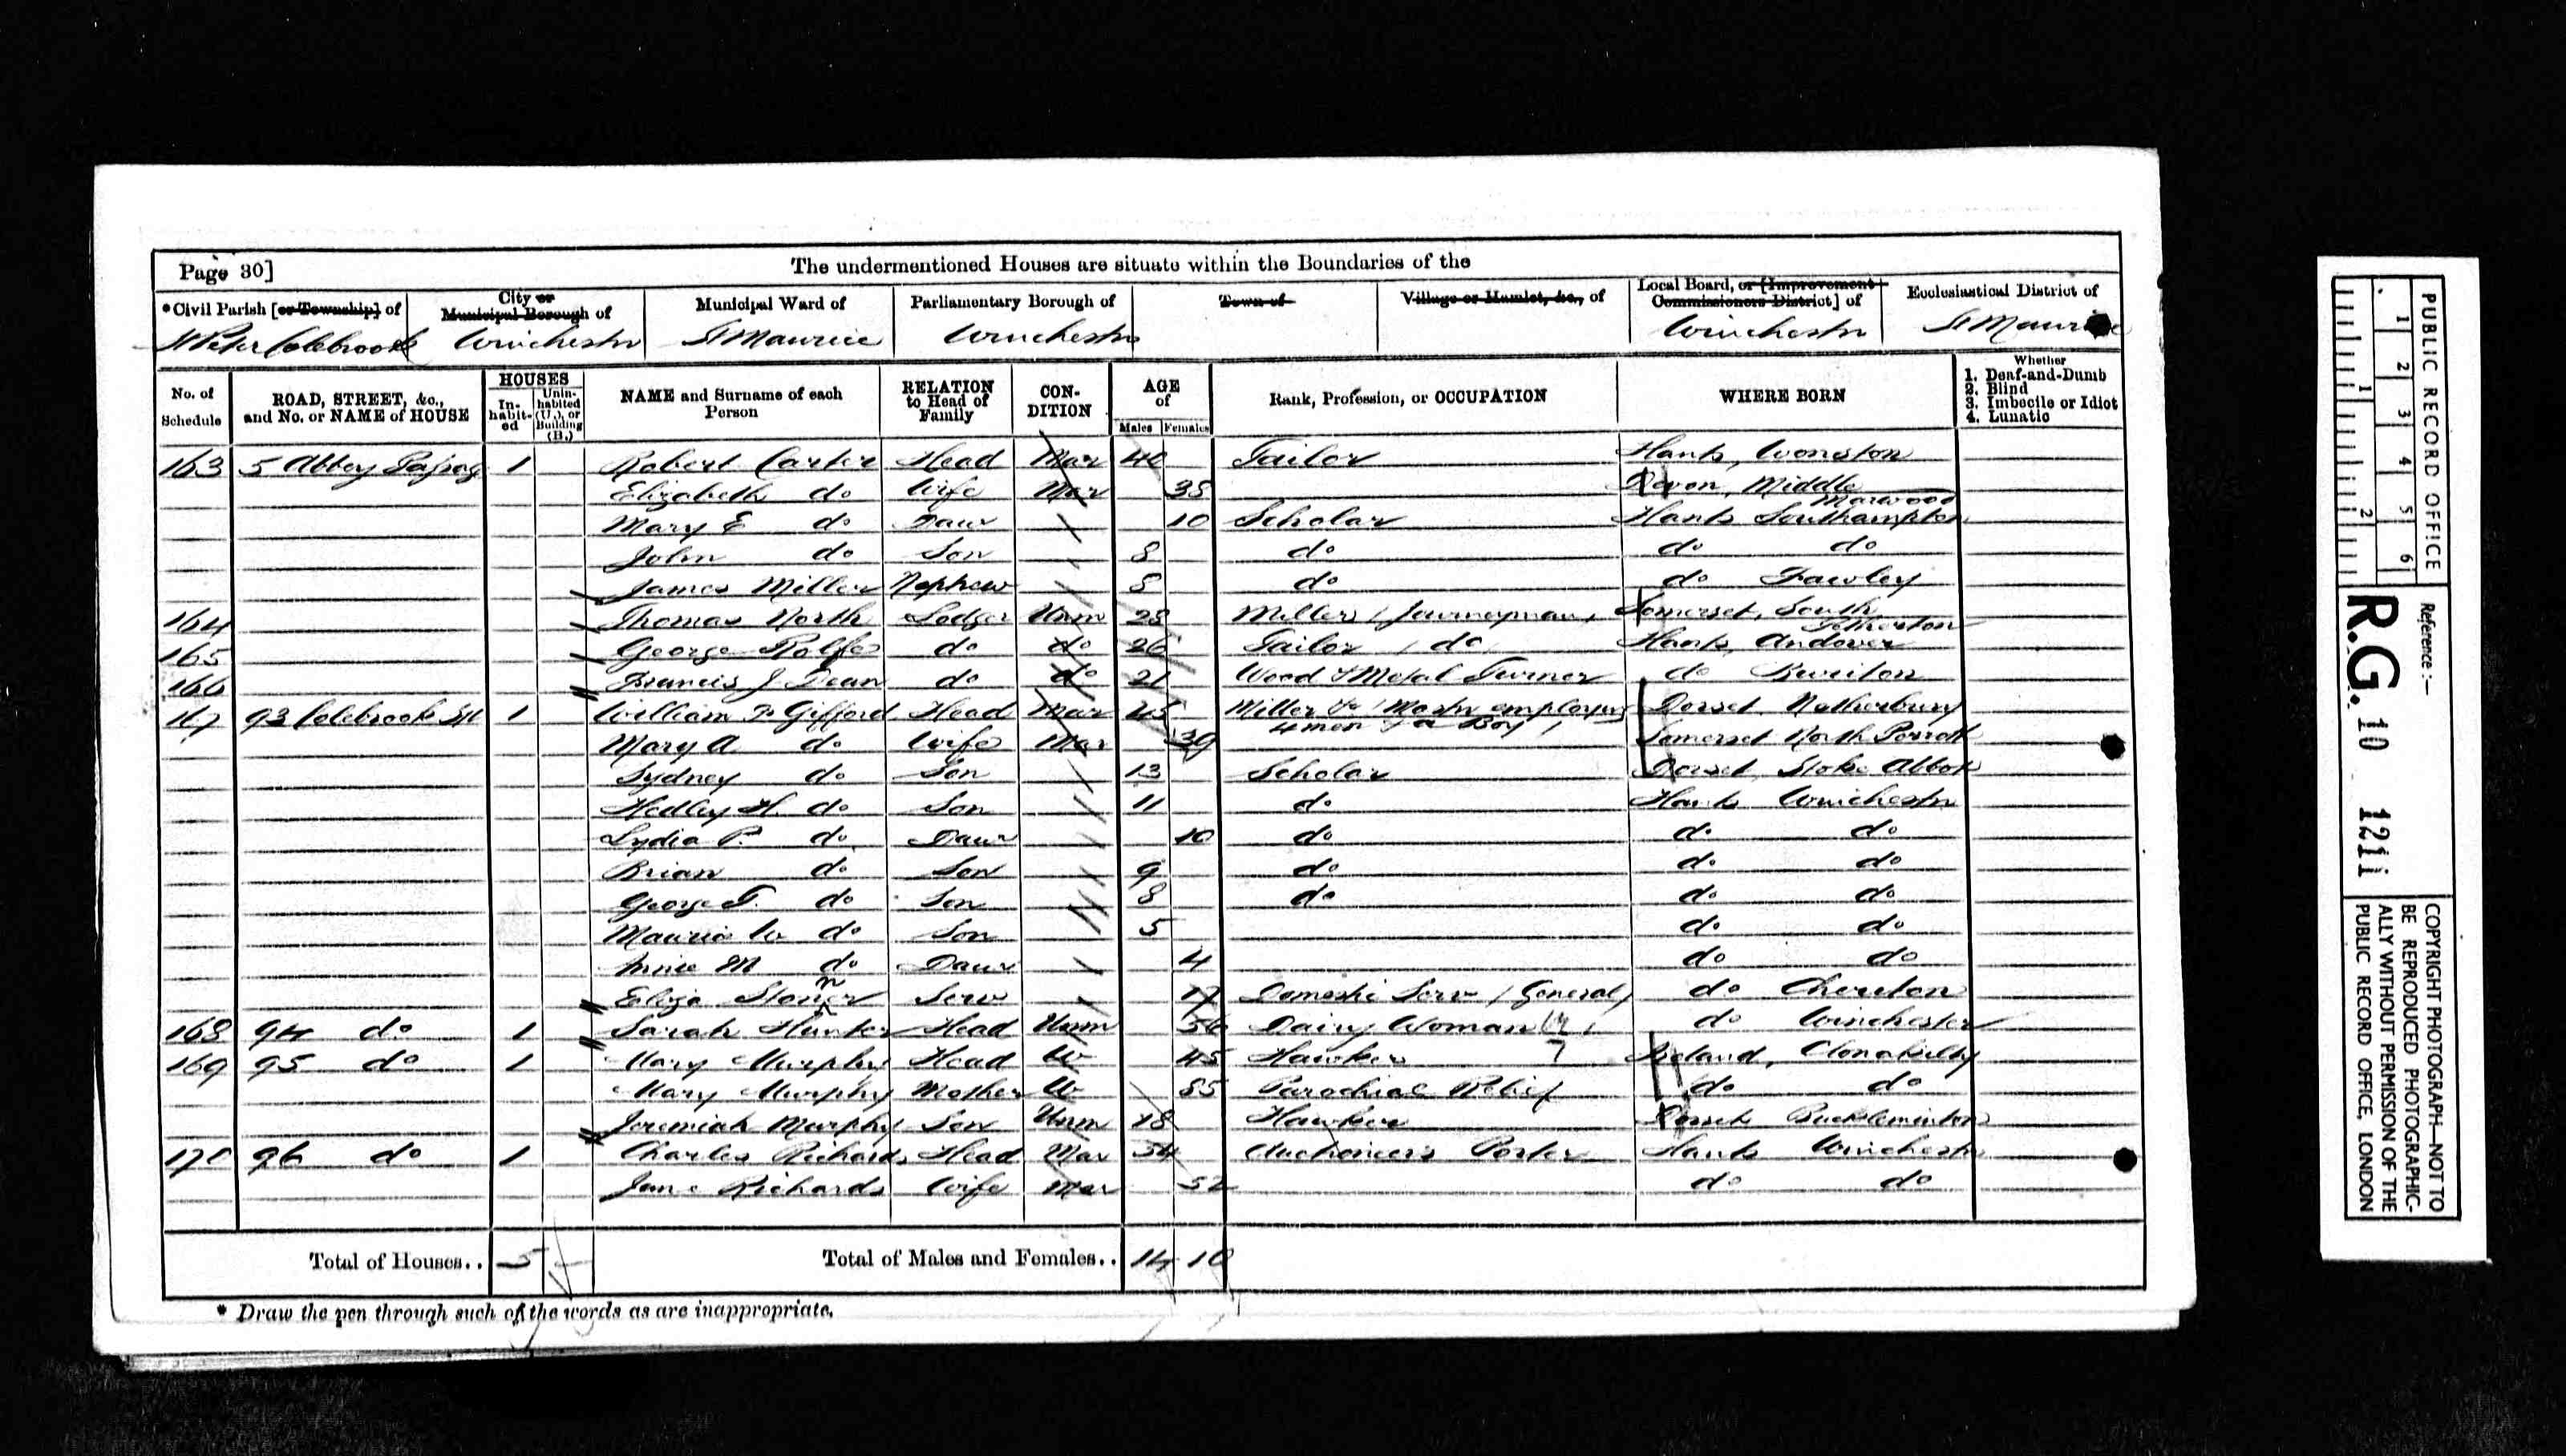 Page 30]
The undermentioned Houses are situate within the Boundaries of the
*Civil Parish [or Township] of City or Municipal Borough of Municipal Ward of Parliamentary Borough of Town of Village or Hamlet, &c., of Local Board, or [Improvement Commissioners District] of Ecclesiastical District of
St Peter Colebrook Winchester St Maurice Winchester Winchester St Maurice
No. of Schedule ROAD, STREET, &c., and No. or NAME of HOUSE HOUSES Inhabited Uninhabited (U.), or Building (B.) NAME and Surname of each Person RELATION to Head of Family CONDITION AGE of Males Females Rank, Profession, or OCCUPATION WHERE BORN Whether 1. Deaf-and-Dumb 2. Blind 3. Imbecile or Idiot 4. Lunatic
163 5 Abbey Passag 1 Robert Carter Head Mar 40 Tailor Hants, Wonston
Elizabeth do Wife Mar 38 Devon, Middle Marwood
Mary E do Daur 10 Scholar Hants Southampton
John do Son 8 do do do
James Miller Nephew 8 do do Fawley
164 Thomas North Lodger Unm 28 Miller (Journeyman) Somerset, South Petherton
165 George Rolfe do do 26 Tailor (do) Hants, Andover
166 Francis J Dean do do 21 Wood & Metal Turner do Buriton
167 93 Colebrook St 1 William P Gifford Head Mar 45 Miller &c (Mastr employing 4 men & a Boy) Dorset, Netherbury
Mary A do Wife Mar 39 Somerset North Perrott
Sydney do Son 13 Scholar Dorset, Stoke Abbott
Hedley H. do Son 11 do Hants Winchestr
Lydia P. do Daur 10 do do do
Brian do Son 9 do do do
George T. do Son 8 do do do
Maurice W do Son 5 do do
Annie M do Daur 4 do do
Eliza Stoner Serv 17 Domestic Serv (General) do Cheriton
168 94 do 1 Sarah Hunter Head Unm 56 Dairy Woman do Winchester
169 95 do 1 Mary Murphy Head W 45 Hawker Ireland, Clonakilty
Mary Murphy Mother W 85 Parochial Relief do do
Jeremiah Murphy Son Unm 18 Hawker Dorset
170 96 do 1 Charles Richards Head Mar 54 Auctioneers Porter Hants Winchestr
Jane Richards Wife Mar 52 do do
Total of Houses.. 5 Total of Males and Females.. 14 10
* Draw the pen through such of the words as are inappropriate.
PUBLIC RECORD OFFICE
1 2 3 4 5 6
1 2
Reference:-
R.G. 10 1211
COPYRIGHT PHOTOGRAPH—NOT TO
BE REPRODUCED PHOTOGRAPHIC-
ALLY WITHOUT PERMISSION OF THE
PUBLIC RECORD OFFICE, LONDON